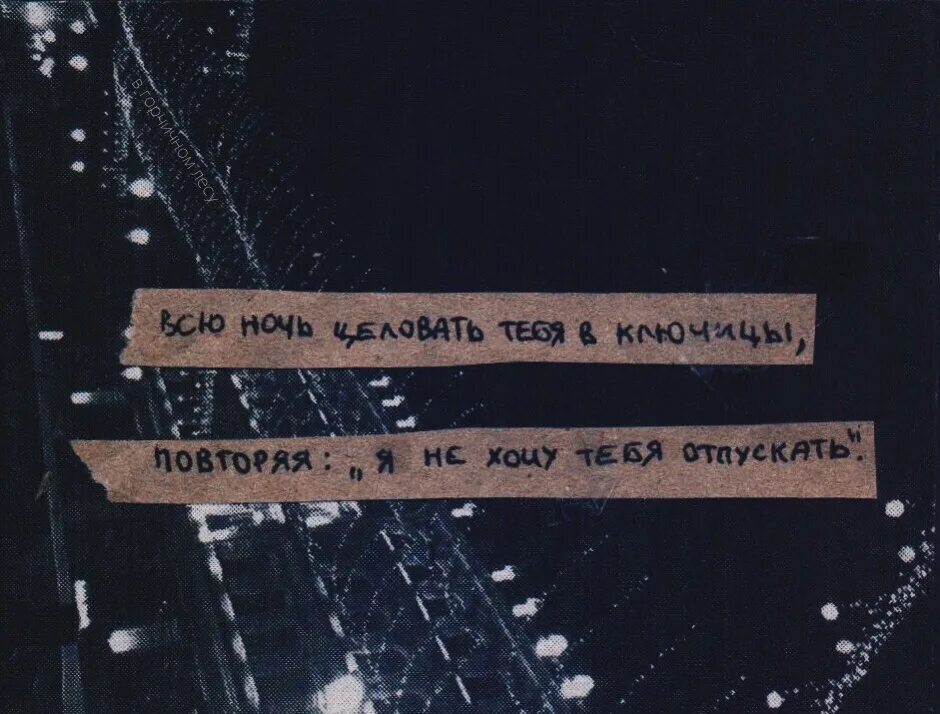 в горчичном лесу
ВСЮ НОЧЬ ЦЕЛОВАТЬ ТЕБЯ В КЛЮЧИЦЫ,
ПОВТОРЯЯ: „Я НЕ ХОЧУ ТЕБЯ ОТПУСКАТЬ".